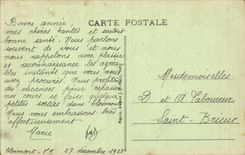 CARTE POSTALE
Bonne année,
mes chères tantes et surtout
bonne santé. Nous parlons
souvent de vous et nous
nous rappelons avec plaisir
et reconnaissance les agréa-
bles instants que vous nous
avez procurés. Nous profitons
de vacances pour réparer
nos cours et faire quelques
petites sorties dans Clermont.
Nous vous embrassons très
affectueusement
Marie
Clermont, Fd 27 décembre 1928
Mesdemoiselles
D. et A. Laboureur
Saint-Brieuc